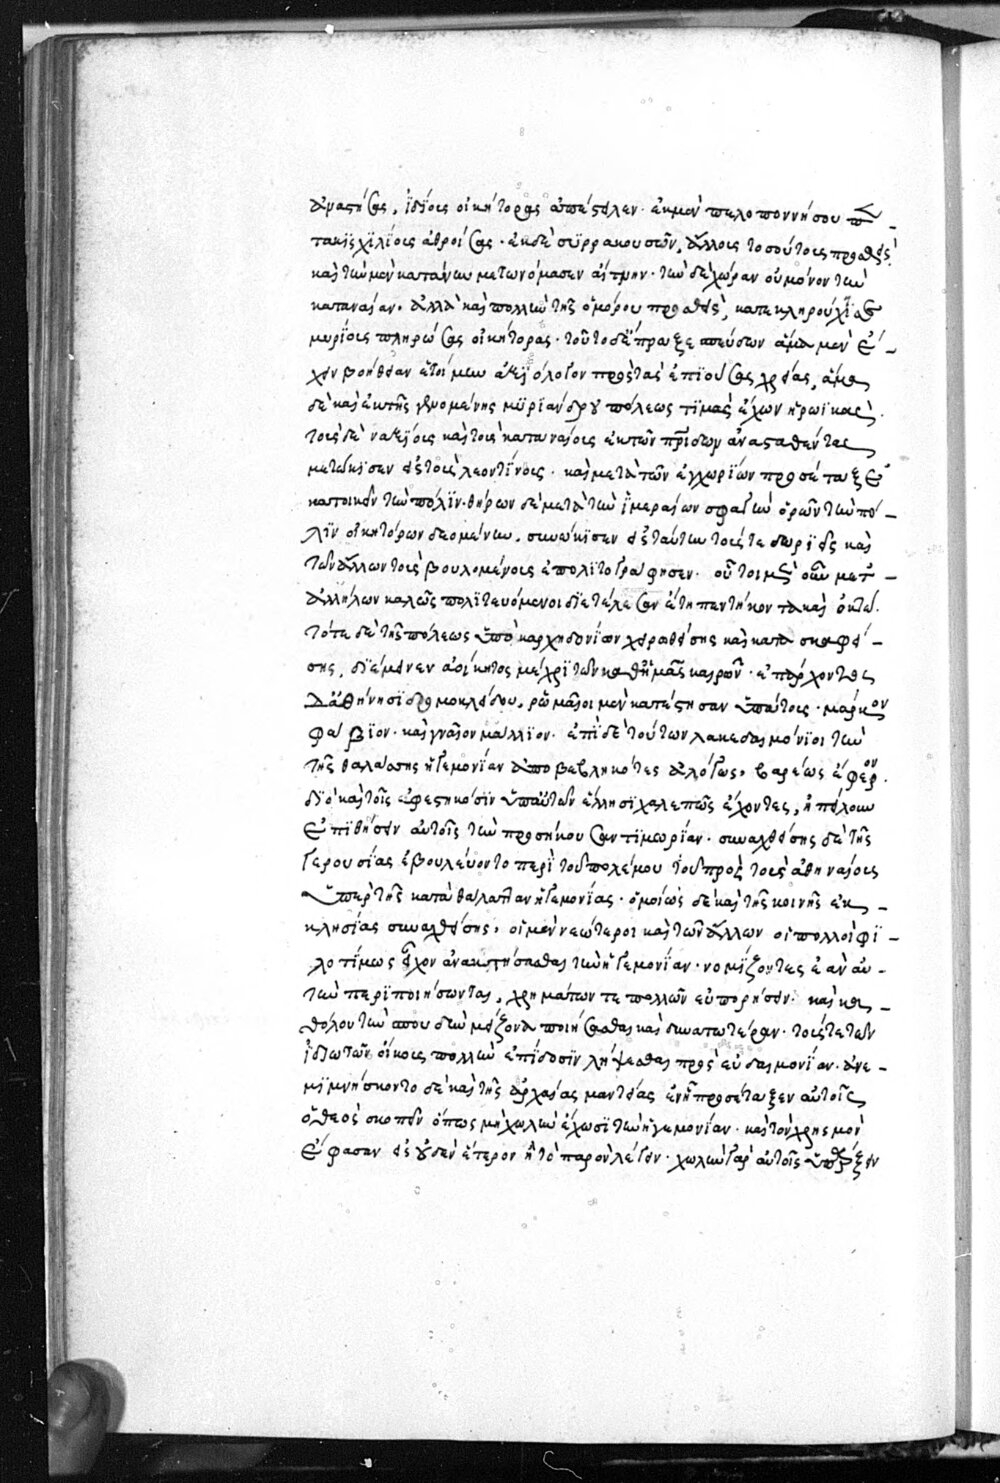 ἀναστήσας, ἰδίους οἰκήτορας ἀπέστειλεν· ἐκ μὲν πελοποννήσου πεν-
τακισχιλίους ἀθροίσας· ἐκ δὲ συρρακουσῶν, ἄλλους τοσούτους προσθείς·
καὶ τὴν μὲν κατάνην μετωνόμασεν αἴτνην· τὴν δὲ χώραν οὐ μόνον τὴν
καταναίαν· ἀλλὰ καὶ πολλὴν τῆς ὁμόρου προσθεὶς, κατεκληρούχησε
μυρίους πληρώσας οἰκήτορας· τοῦτο δ' ἔπραξε σπεύδων ἅμα μὲν ἔ-
χειν βοήθειαν ἑτοίμην ἀξιόλογον πρὸς τὰς ἐπιούσας χρείας, ἅμα
δὲ καὶ ἐκ τῆς γενομένης μυριάνδρου πόλεως τιμὰς ἔχων ἡρωϊκάς·
τοὺς δὲ ναξίους καὶ τοὺς καταναίους ἐκ τῶν πατρίδων ἀνασταθέντας
μετώκισεν εἰς τοὺς λεοντίνους· καὶ μετὰ τῶν ἐγχωρίων προσέταξε
κατοικεῖν τὴν πόλιν· θήρων δὲ μετὰ τὴν ἱμεραίων σφαγὴν ὁρῶν τὴν πό-
λιν οἰκητόρων δεομένην, συνώκισεν εἰς ταύτην τούς τε δωριεῖς καὶ
τῶν ἄλλων τοὺς βουλομένους ἐπολιτογράφησεν· οὗτοι μὲν οὖν μετ'
ἀλλήλων καλῶς πολιτευόμενοι διετέλεσαν ἔτη πεντήκοντα καὶ ὀκτώ·
τότε δὲ τῆς πόλεως ὑπὸ καρχηδονίων χειρωθείσης καὶ κατασκαφεί-
σης, διέμεινεν ἀοίκητος μέχρι τῶν καθ' ἡμᾶς καιρῶν· ἐπ' ἄρχοντος
δ' ἀθήνησι δρομοκλείδου, ῥωμαῖοι μὲν κατέστησαν ὑπάτους· μάρκον
φάβιον· καὶ γναῖον μάλλιον· ἐπὶ δὲ τούτων λακεδαιμόνιοι τὴν
τῆς θαλάσσης ἡγεμονίαν ἀποβεβληκότες ἀλόγως, βαρέως ἔφερον·
διὸ καὶ τοῖς ἀφεστηκόσιν ὑπ' αὐτῶν ἕλλησι χαλεπῶς ἔχοντες, ἠπείλουν
ἐπιθήσειν αὐτοῖς τὴν προσήκουσαν τιμωρίαν· συναχθείσης δὲ τῆς
γερουσίας ἐβουλεύοντο περὶ τοῦ πολέμου τοῦ πρὸς τοὺς ἀθηναίους
ὑπὲρ τῆς κατὰ θάλατταν ἡγεμονίας· ὁμοίως δὲ καὶ τῆς κοινῆς ἐκ-
κλησίας συναχθείσης, οἱ μὲν νεώτεροι καὶ τῶν ἄλλων οἱ πολλοὶ φι-
λοτίμως εἶχον ἀνακτήσασθαι τὴν ἡγεμονίαν· νομίζοντες ἐὰν αὐ-
τὴν περιποιήσωνται, χρημάτων τε πολλῶν εὐπορήσειν· καὶ κα-
θόλου τὴν σπάρτην μείζονα ποιήσασθαι καὶ δυνατωτέραν· τούς τε τῶν
ἰδιωτῶν οἴκους πολλὴν ἐπίδοσιν λήψεσθαι πρὸς εὐδαιμονίαν· ἀνε-
μιμνήσκοντο δὲ καὶ τῆς ἀρχαίας μαντείας ἐν ᾗ προσέταξεν αὐτοῖς
ὁ θεὸς σκοπεῖν ὅπως μὴ χωλὴν ἔχωσι τὴν ἡγεμονίαν· καὶ τὸν χρησμὸν
ἔφασαν εἰς οὐδὲν ἕτερον ἢ τὸ παρὸν λέγειν· χωλὴν γὰρ αὐτοῖς ὑπάρξειν